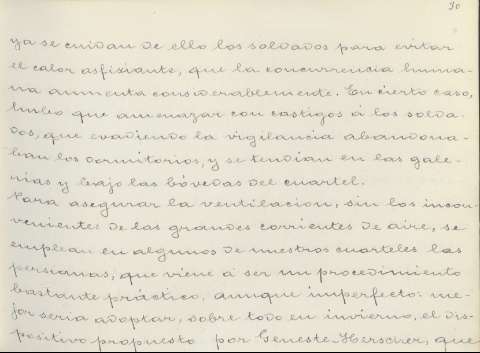 30
ya se cuidan de ello los soldados para evitar
el calor asfixiante, que la concurrencia huma-
na aumenta considerablemente. En cierto caso,
hubo que amenazar con castigos á los solda-
dos, que evadiendo la vigilancia abandona-
ban los dormitorios, y se tendian en las gale-
rias y bajo las bóvedas del cuartel.
Para asegurar la ventilacion, sin los incon-
venientes de las grandes corrientes de aire, se
emplean en algunos de nuestros cuarteles las
persianas, que viene á ser un procedimiento
bastante práctico, aunque imperfecto: me-
jor seria adoptar, sobre todo en invierno, el dis-
positivo propuesto por Geneste-Herscher, que